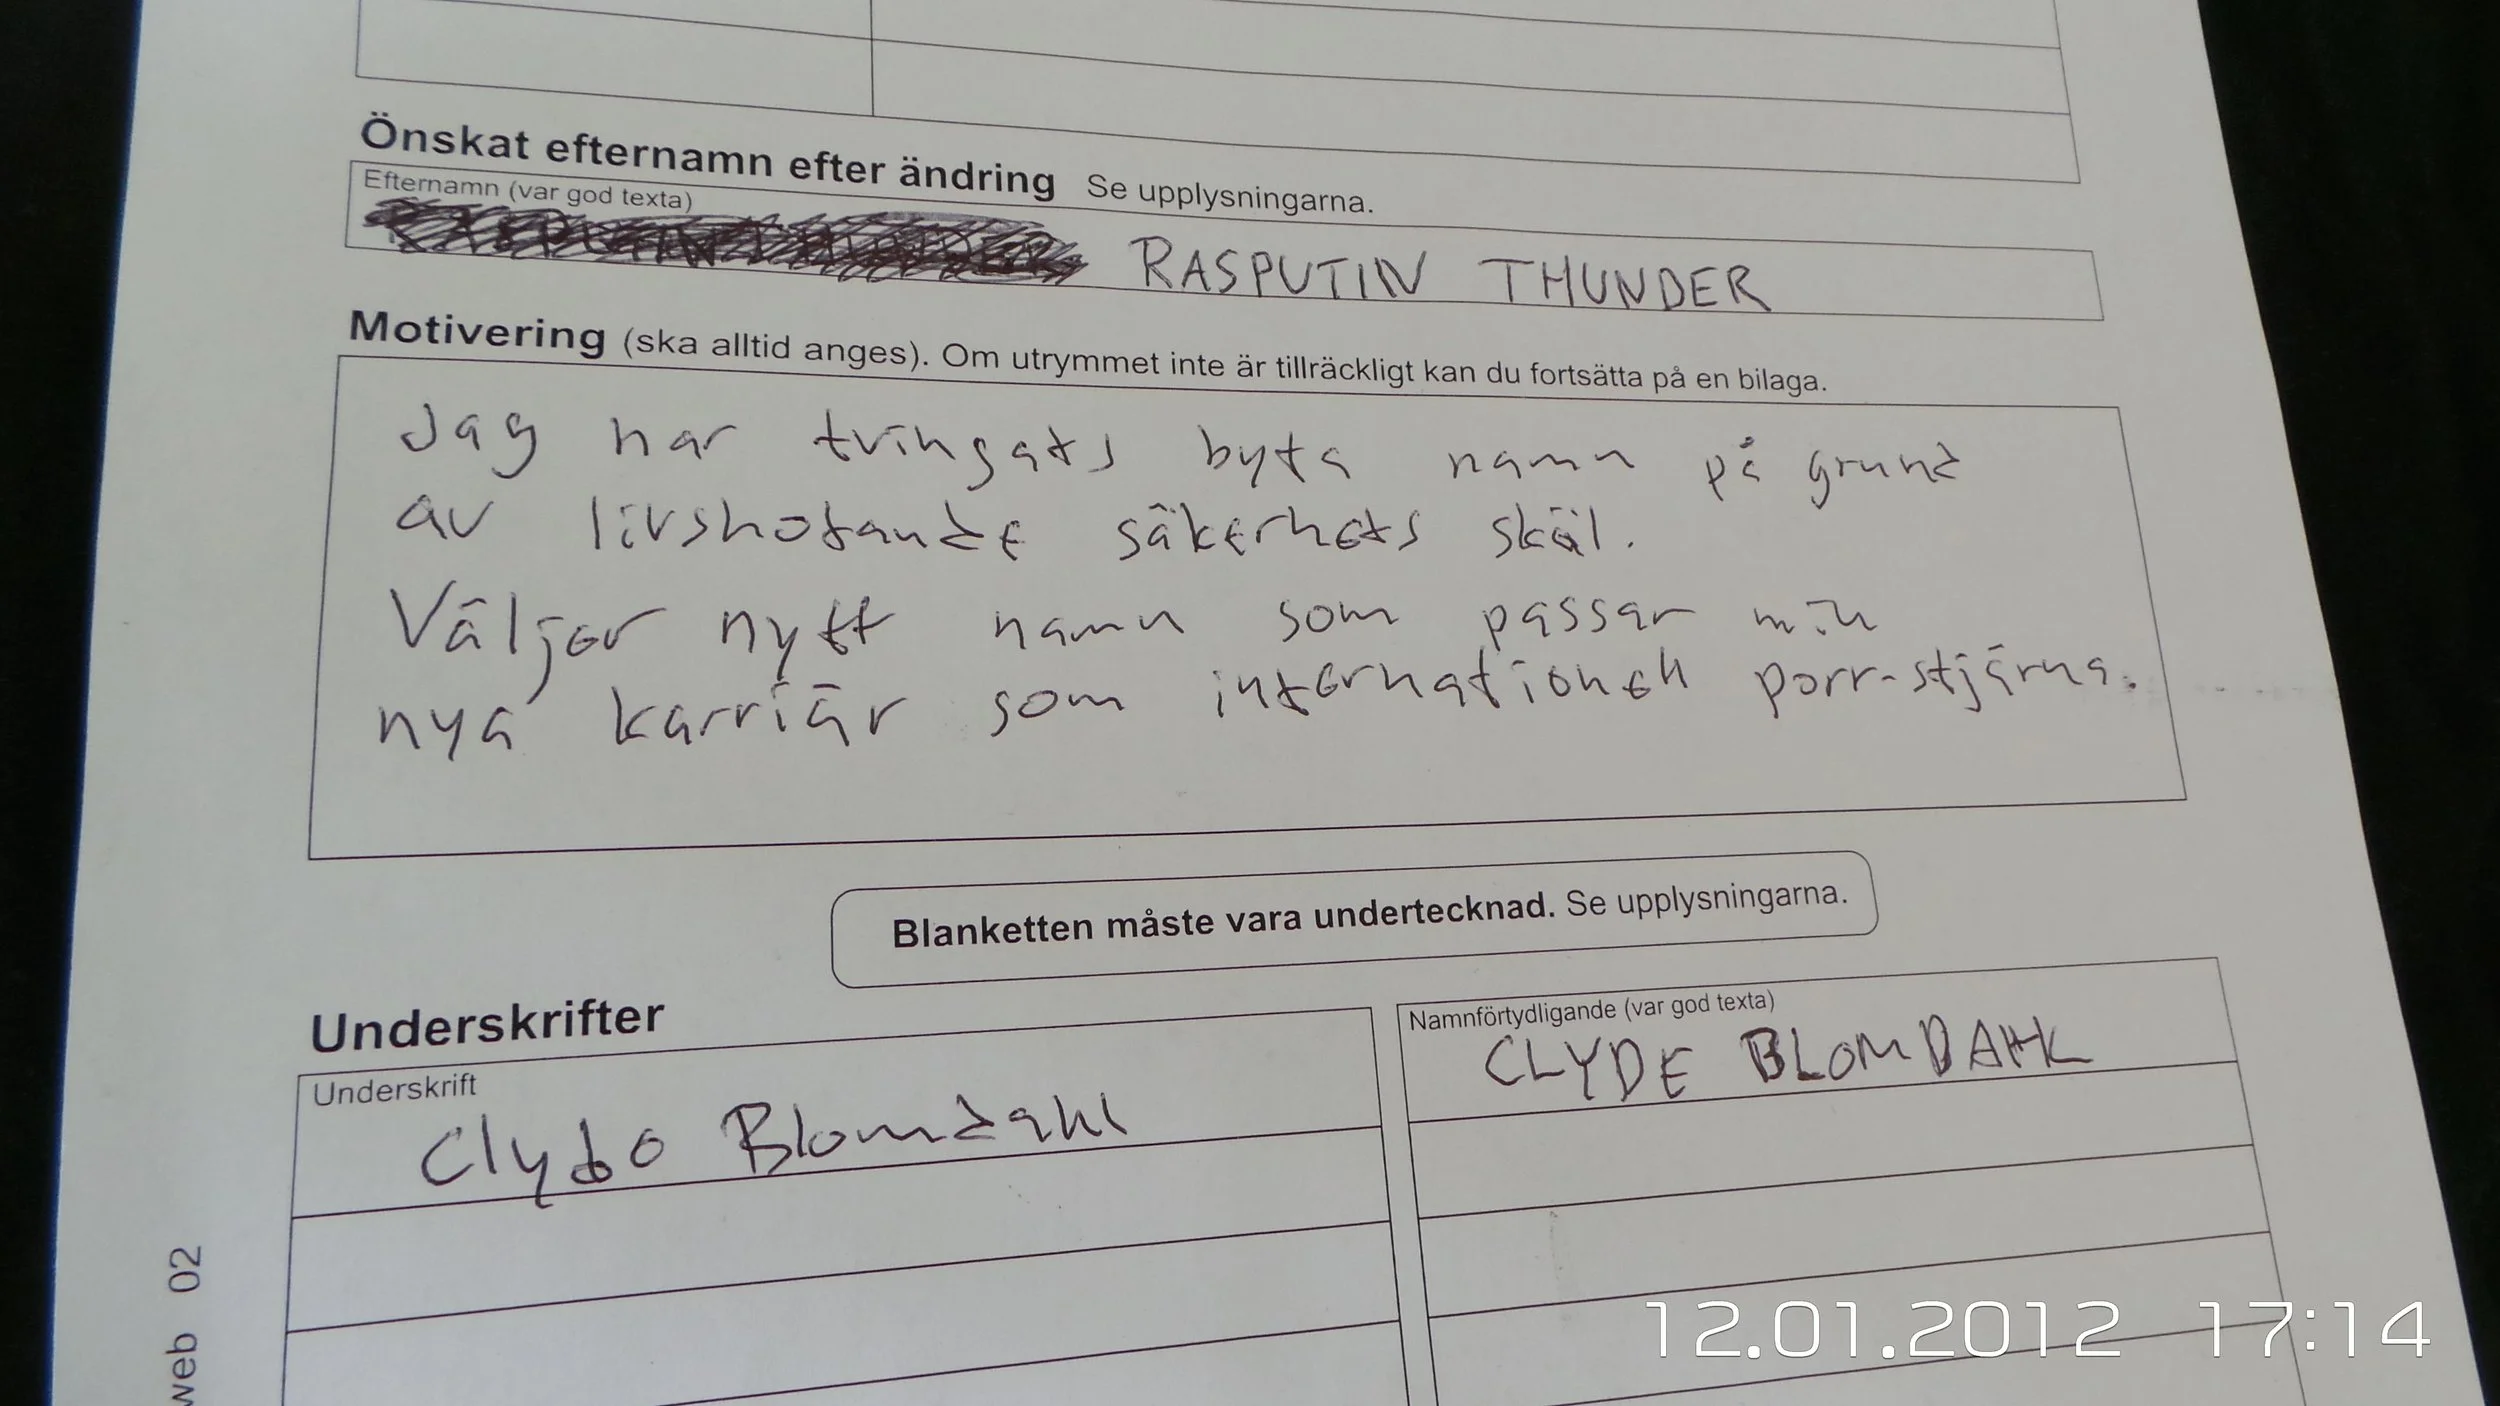 Önskat efternamn efter ändring Se upplysningarna.
Efternamn (var god texta)
RASPUTIN THUNDER
Motivering (ska alltid anges). Om utrymmet inte är tillräckligt kan du fortsätta på en bilaga.
Jag har tvingats byta namn på grund
av livshotande säkerhets skäl.
Väljer nytt namn som passar min
nya karriär som internationell porr-stjärna.
Blanketten måste vara undertecknad. Se upplysningarna.
Underskrifter
Underskrift
Clyde Blomdahl
Namnförtydligande (var god texta)
CLYDE BLOMDAHL
web 02
12.01.2012 17:14